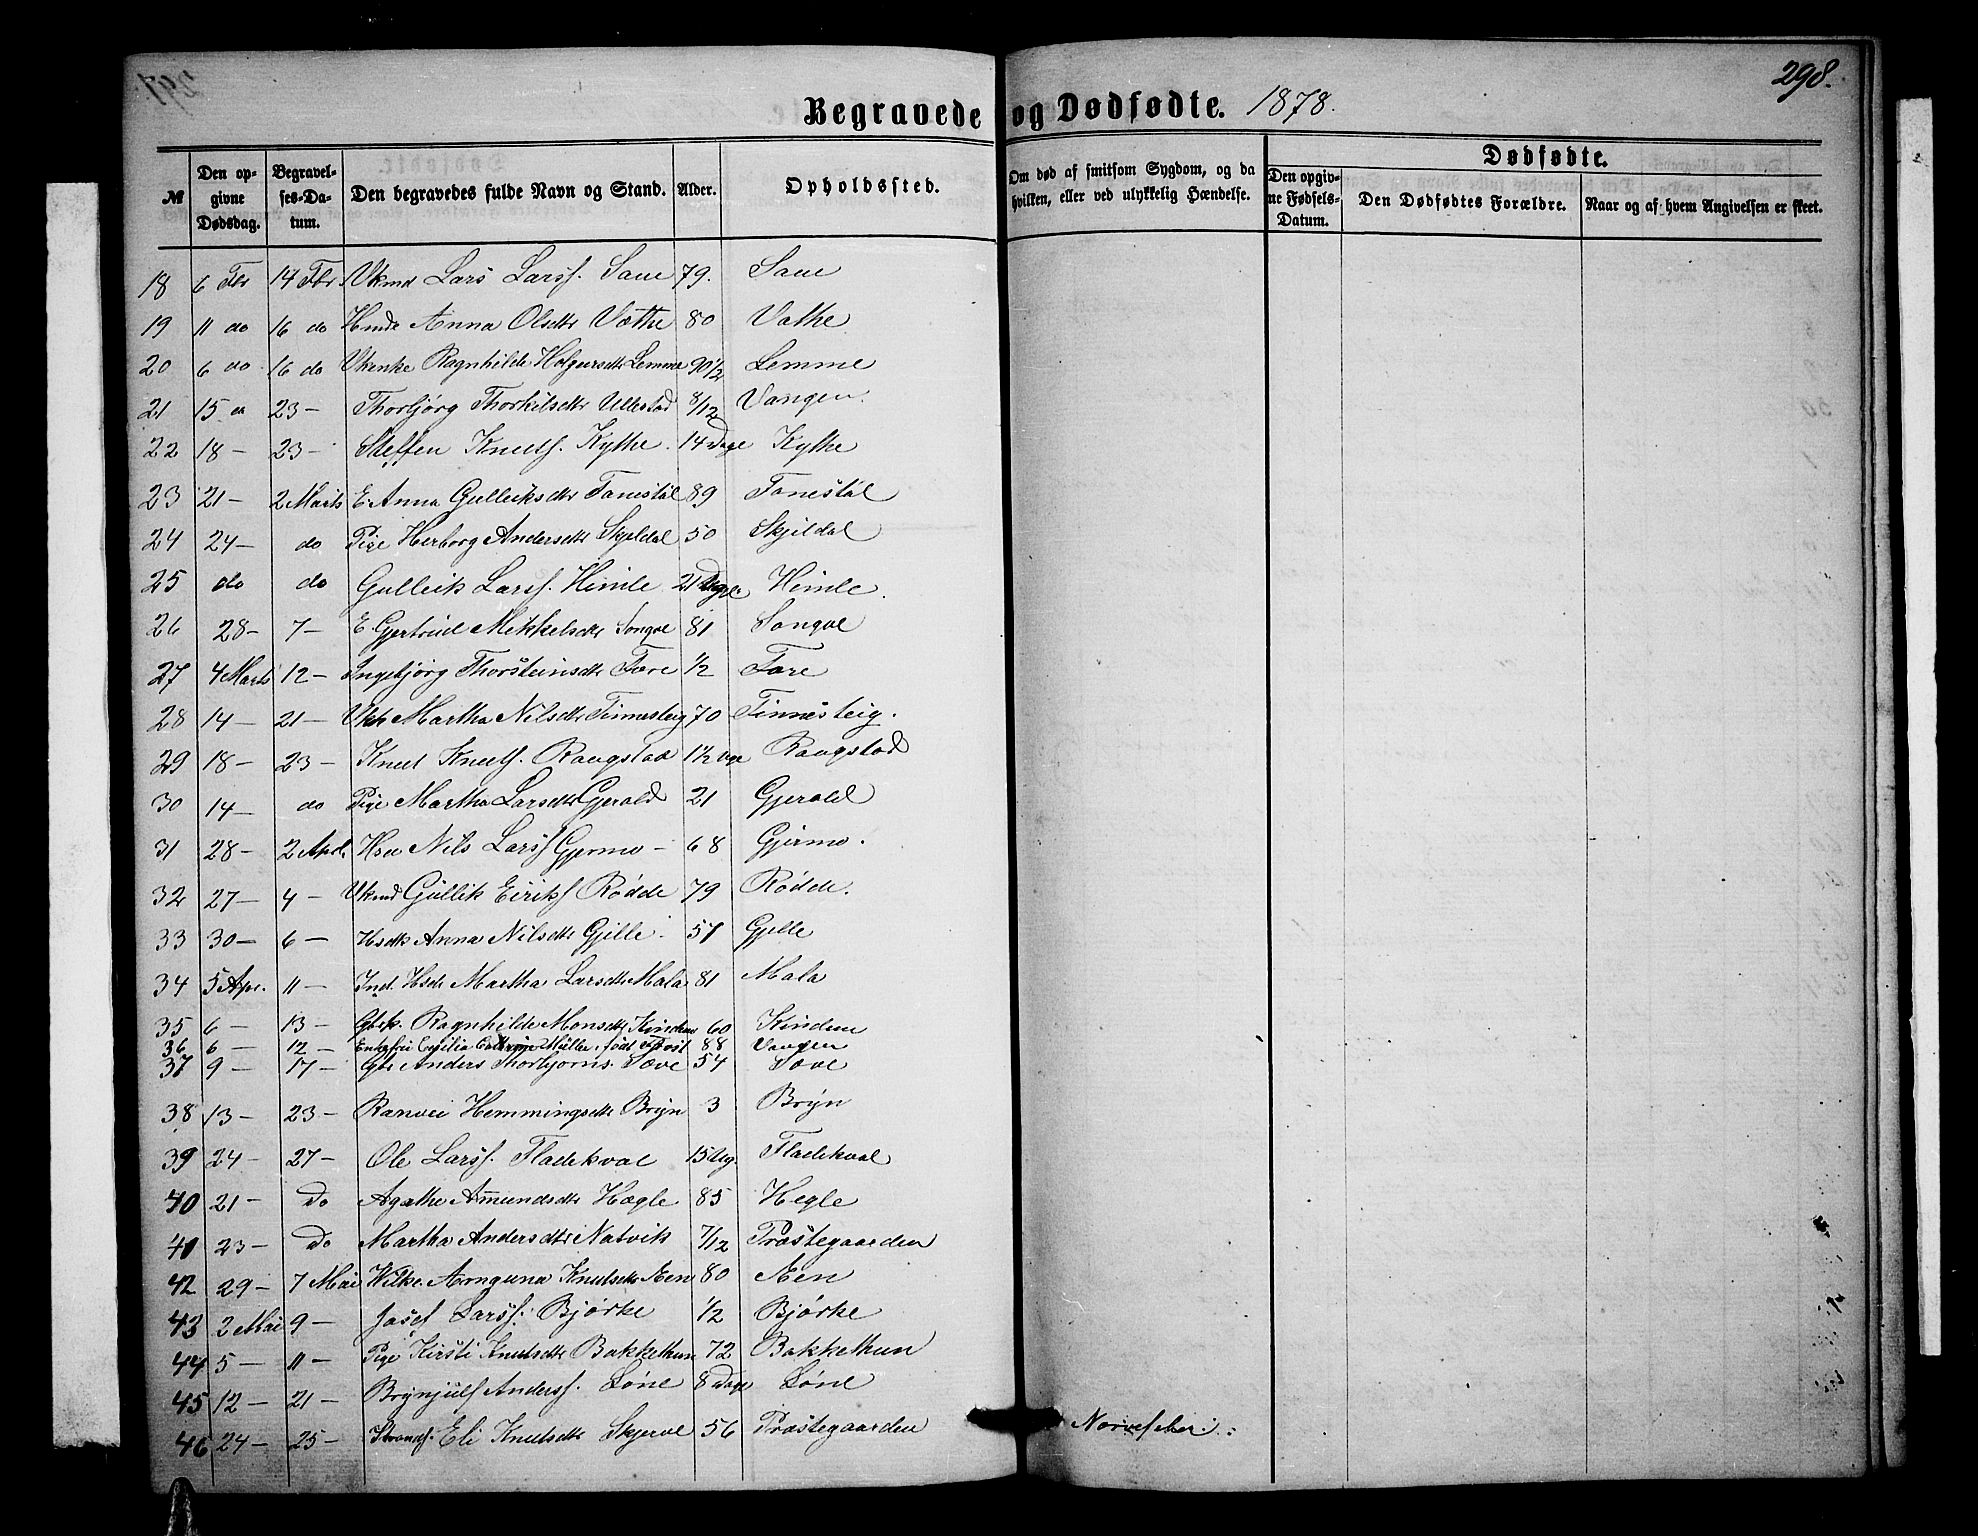 298.
Begravede og Dødfødte. 1878.
№ Den opgivne Dødsdag. Begravelses-Datum. Den begravedes fulde Navn og Stand. Alder. Opholdssted. Om død af smitsom Sygdom, og da hvilken, eller ved ulykkelig Hændelse. Dødfødte. Den opgivne Fødsels-Datum. Den Dødfødtes Forældre. Naar og af hvem Angivelsen er skeet.
18 6 Fbr 14 Fbr. Vkmd Lars Larss. Saue 79. Saue
19 11 do 16 do Anna Olsdtr Væthe 80 Vathe
20 6 do 16 do Vkenke Ragnhilde Holgersdtr Lemme 90 1/2 Lemme
21 15 23 – Thorbjørg Thorkilsdtr Ullestad 8/12 Vangen.
22 18 – 23 – Steffen Knuts. Kythe. 14 Dage Kythe
23 21 – 2 Marts E. Anna Gulleiksdtr Tonestøl 89 Tonestøl
24 24 – do Pige Herborg Andersdtr Skjeldal 50 Skjildal
25 do do Gulleik Larss. Himle 21 Dage Himle.
26 28 – 7 – E. Gjertrud Mikkelsdtr Songve 81 Songve
27 4 Marts 12 – Ingebjørg Thorsteinsdtr Føre 1/2 Føre
28 14 – 21 – Vke Martha Nilsdtr Finnesteig 70 Finnesteig.
29 18 – 23 – Knut Knuts. Rongstad 1 1/2 Dage Rongstad
30 14 – do Pige Martha Larsdtr Gjerald 21 Gjerald
31 28 – 2 Apr. Nils Larss Gjermo – 68 Gjermo.
32 27 – 4 – Vkmd Gullik Eiriks Rødde 79 Rødde.
33 30 – 6 – Anna Nilsdtr Gjelle. 57 Gjelle
34 5 Apr. 11 – Ind. Martha Larsdtr Mala 81 Mala
35 6 – 13 – Ragnhilde Monsdtr Kinden 60 Kinden
36 6 – 12 – Müller, født 88 Vangen
37 9 – 17 – Anders Thorbjørns. Sæve 54 Sæve
38 13 – 23 – Ranvei Hemmingsdtr Brÿn 3 Brÿn
39 24 – 27 – Ole Larss. Fladekval 15 Dg. Fladekval
40 21 – Do Agathe Amundsdtr Hægle 85 Hegle
41 23 – Do Martha Andersdtr Natvik 7/12 Præstegaarden
42 29 – 7 Mai Arnguna Knutsdtr Æen 80 Æen
43 2 Mai 9 – Josef Larss. Bjørke 1/2 Bjørke
44 5 – 11 – Pige Kirsti Knutsdtr Bakkethun 72 Bakkethun
45 12 – 21 – Brÿnjulf Anderss. Løne 8 Dage Løne
46 24 – 25 – Eli Knutsdtr Skjerve 56 Præstegaarden